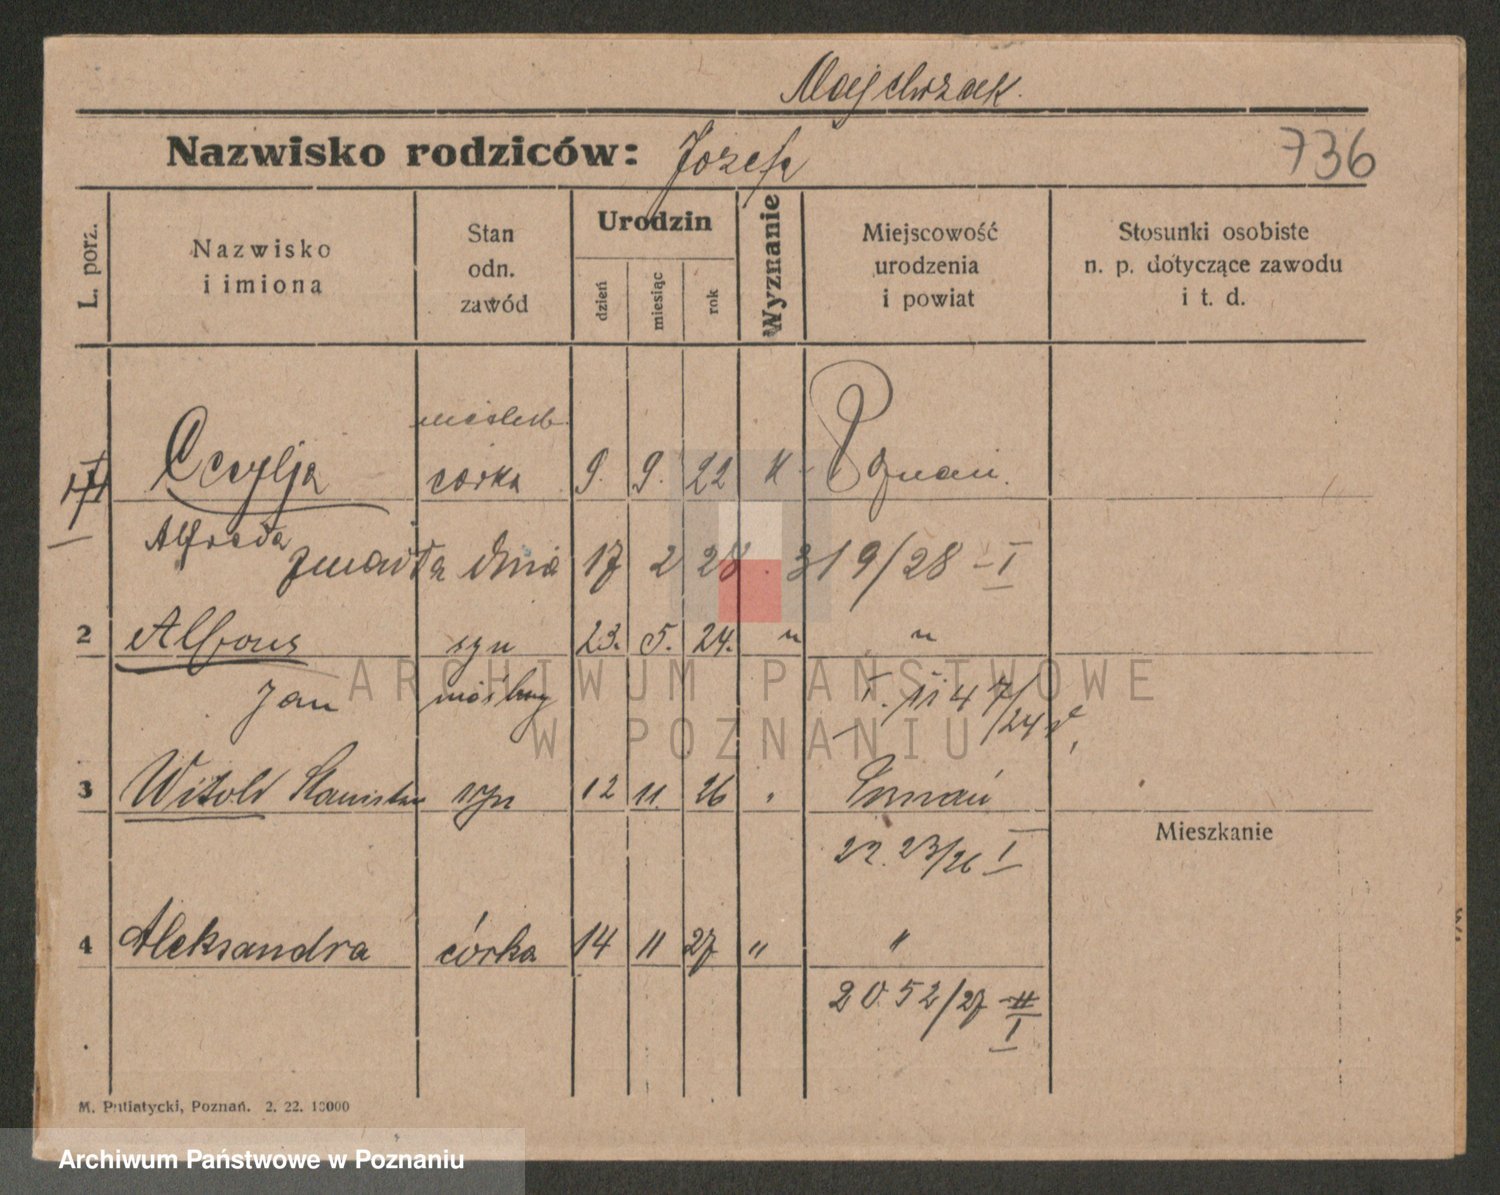 Majchrzak.
Nazwisko rodziców: Józefa
736
L. porz.
Nazwisko
i imiona
Stan
odn.
zawód
Urodzin
dzień
miesiąc
rok
Wyznanie
Miejscowość
urodzenia
i powiat
Stosunki osobiste
n. p. dotyczące zawodu
i t. d.
nieślub
Cecylja córka 9. 9. 22 K Poznań.
Alfreda
zmarła dnia 17 2 28. 319/28 - I
2 Alfons syn 23. 5. 24. " "
Jan nieślubny I. 1147/24
3 Witold Stanisław syn 12 11. 26 " Poznań
Mieszkanie
22.23/26 I
4 Aleksandra córka 14 11 27 " "
2052/27 II
I
M. Putiatycki, Poznań. 2. 22. 10000
ARCHIWUM PAŃSTWOWE
W POZNANIU
Archiwum Państwowe w Poznaniu